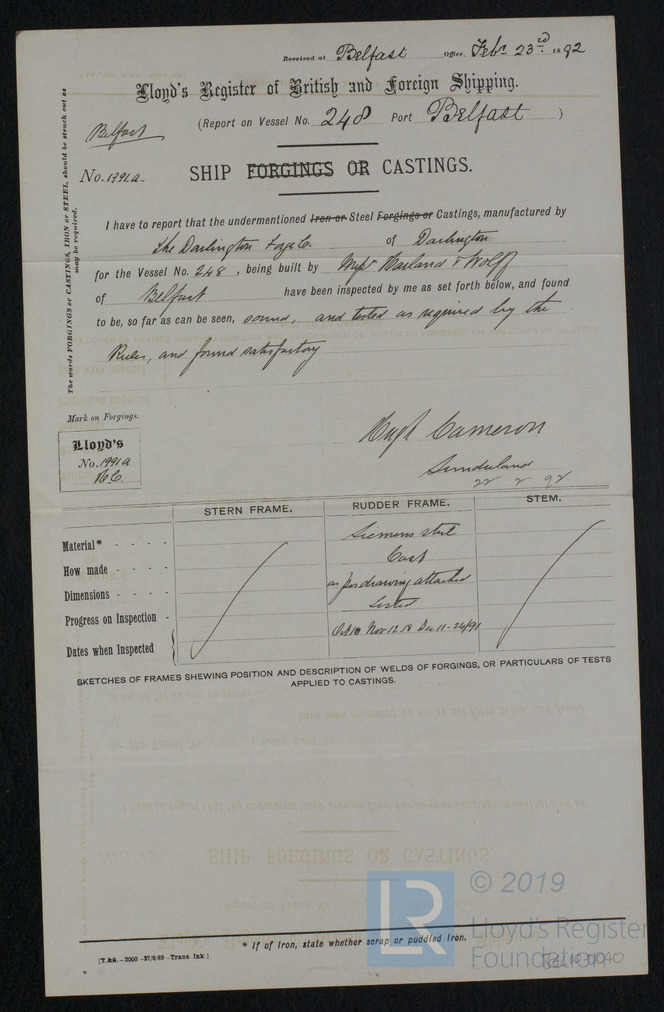 Received at Belfast Office, Febr 23rd 1892
Lloyd's Register of British and Foreign Shipping.
(Report on Vessel No. 248 Port Belfast )
Belfast
No. 1991a.
SHIP FORGINGS OR CASTINGS.
The words FORGINGS or CASTINGS, IRON or STEEL, should be struck out as
may be required.
I have to report that the undermentioned Iron or Steel Forgings or Castings, manufactured by
The Darlington Forge Co. of Darlington
for the Vessel No. 248, being built by Messrs Harland & Wolff
of Belfast have been inspected by me as set forth below, and found
to be, so far as can be seen, sound, and tested as required by the
Rules, and found satisfactory
Mark on Forgings.
Lloyd's
No. 1991a
H.C.
Hugh Cameron
Sunderland
22 2 92
STERN FRAME. RUDDER FRAME. STEM.
Material* - - - - Siemens steel
How made - - - - Cast
Dimensions - - - - as per drawing attached
Progress on Inspection - Tested
Dates when Inspected Oct 10 Nov 12.18 Dec 11-24/91
SKETCHES OF FRAMES SHEWING POSITION AND DESCRIPTION OF WELDS OF FORGINGS, OR PARTICULARS OF TESTS
APPLIED TO CASTINGS.
* If of Iron, state whether scrap or puddled Iron.
[T.&S.-2000-27/8/89-Trans. Ink.]
LR
© 2019
Lloyd's Register
Foundation